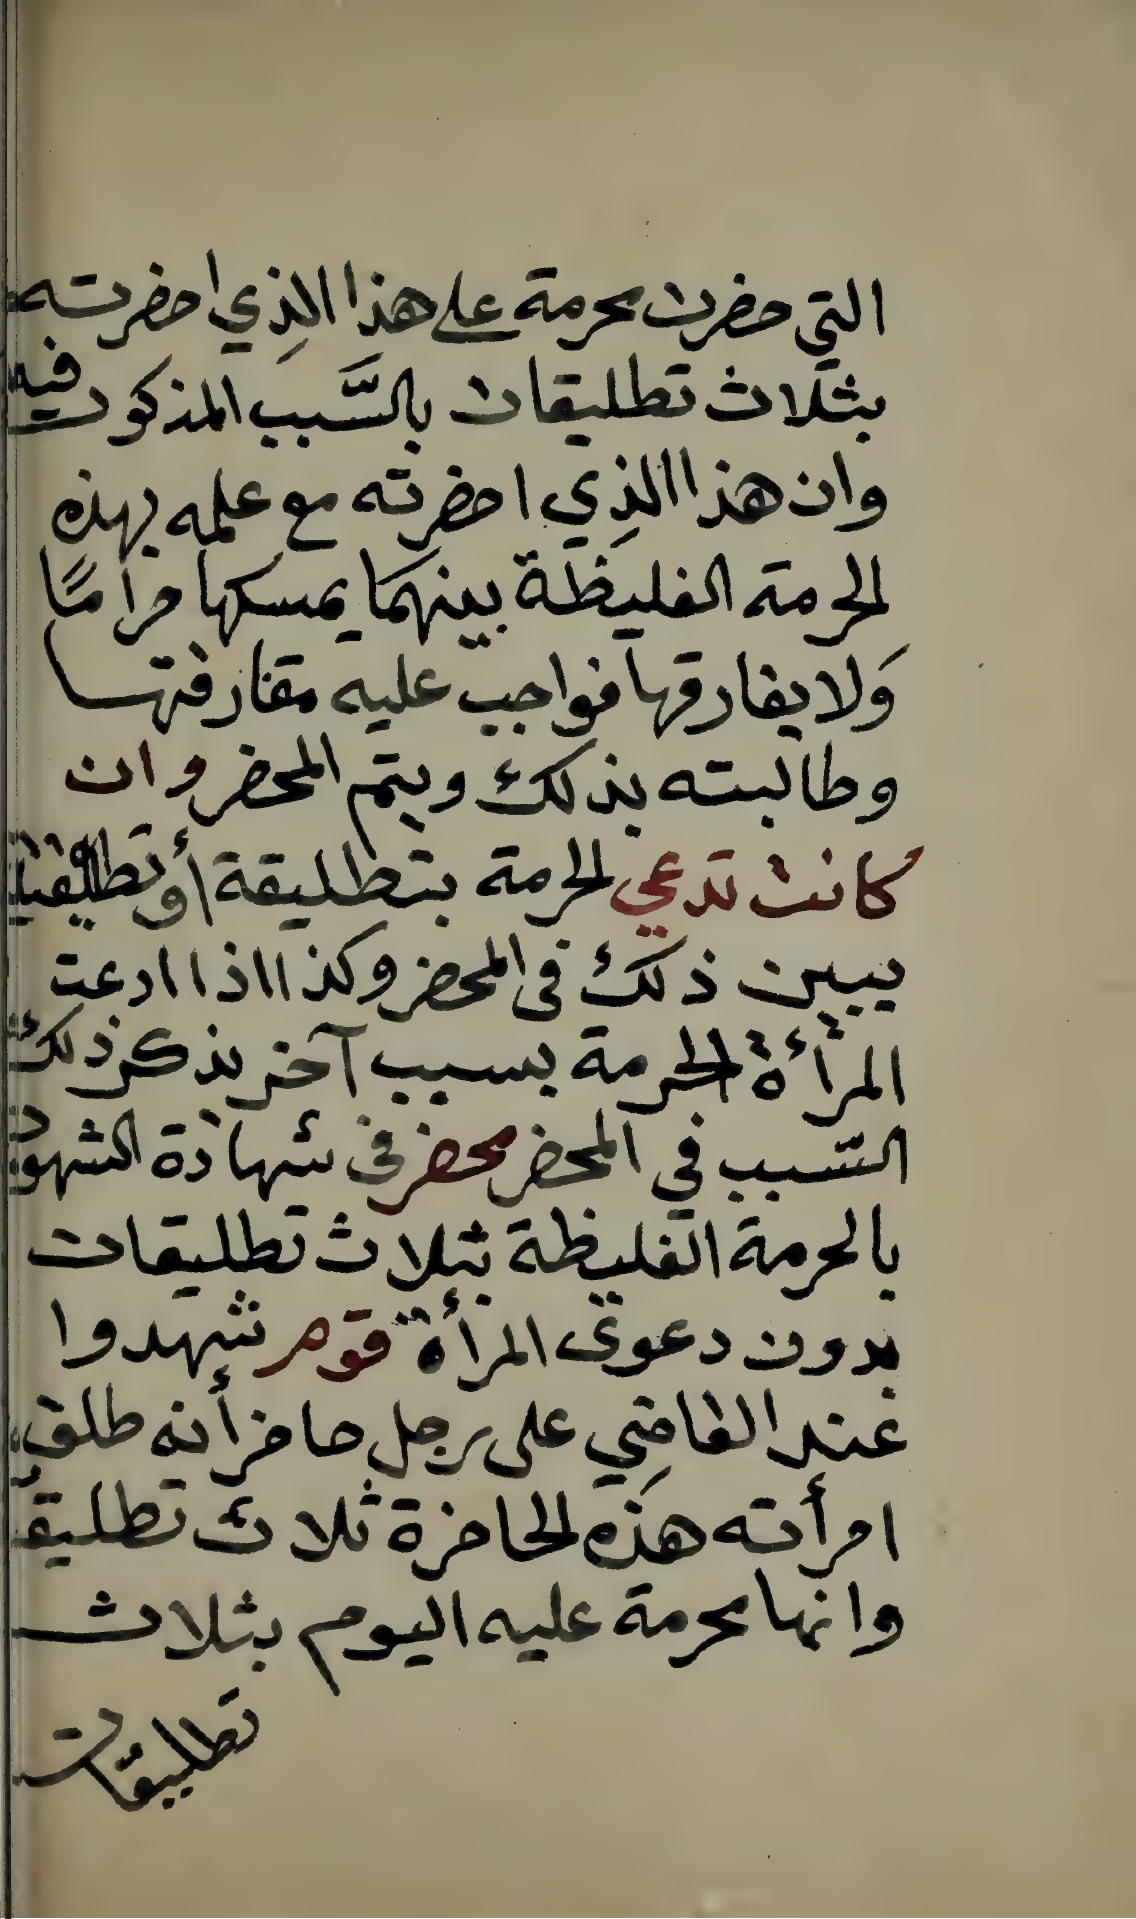 التي حضرت محرمة على هذا الذِي احضرته
بثلاث تطليقات بالسَّبب المذكور فيه
وان هذا الذِي احضرته مع علمه بهذه
الحرمة الغليظة بينهمَا يمسكها حرامًا
وَلا يفارقها فواجب عليه مفارقتها
وطالبته بذلك ويتم المحضر وان
كانت تدعي الحرمة بتطليقة أو تطليقتين
يبين ذلك فى المحضر وكذا اذا ادعت
المرأة الحرمة بسبب آخر يذكر ذلك
السّبب في المحضر محضر فى شهادة الشهود
بالحرمة الغليظة بثلاث تطليقات
بدون دعوى المرأة قوم شهدوا
عند القاضِي على رجل حاضر أنه طلق
امرأته هذه الحاضرة ثلاث تطليقا
وانها محرمة عليه اليوم بثلاث
تطليقات